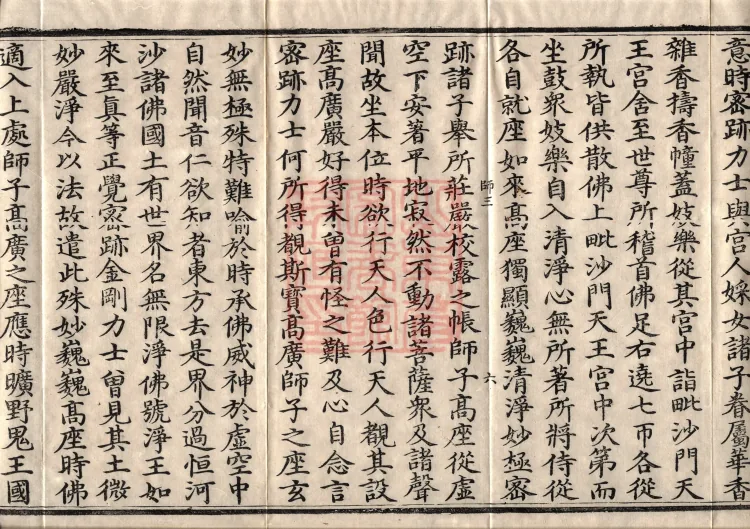 意時密跡力士與宮人婇女諸子眷屬華香
雜香擣香幢蓋妓樂從其宮中詣毗沙門天
王宮舍至世尊所稽首佛足右遶七帀各從
所執皆供散佛上毗沙門天王宮中次第而
坐鼓衆妓樂自入清淨心無所著所將侍從
各自就座如來高座獨顯巍巍清淨妙極密
師三 六
跡諸子舉所莊嚴校露之帳師子高座從虛
空下安著平地寂然不動諸菩薩衆及諸聲
聞故坐本位時欲行天人色行天人觀其設
座高廣嚴好得未曾有怪之難及心自念言
密跡力士何所得覩斯寶高廣師子之座玄
妙無極殊特難喻於時承佛威神於虛空中
自然聞音仁欲知者東方去是界分過恒河
沙諸佛國土有世界名無限淨佛號淨王如
來至真等正覺密跡金剛力士曾見其土微
妙嚴淨今以法故遣此殊妙巍巍高座時佛
適入上處師子高廣之座應時曠野鬼王國